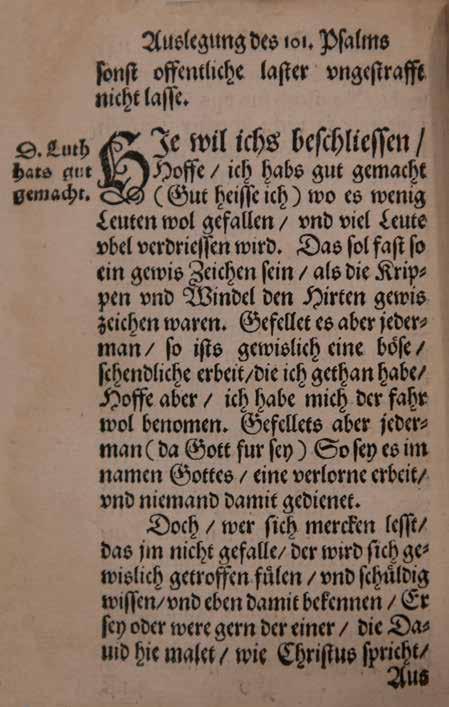 Auslegung des 101. Psalms
sonst offentliche laster vngestrafft
nicht lasse.
D. Luth
hats gut
gemacht.
HIe wil ichs beschliessen /
Hoffe / ich habs gut gemacht
(Gut heisse ich) wo es wenig
Leuten wol gefallen / vnd viel Leute
vbel verdriessen wird. Das sol fast so
ein gewis Zeichen sein / als die Krip-
pen vnd Windel den Hirten gewis
zeichen waren. Gefellet es aber jeder-
man / so ists gewislich eine böse /
schendliche erbeit / die ich gethan habe /
Hoffe aber / ich habe mich der fahr
wol benomen. Gefellets aber jeder-
man (da Gott fur sey) So sey es im
namen Gottes / eine verlorne erbeit /
vnd niemand damit gedienet.
Doch / wer sich mercken lesst /
das jm nicht gefalle / der wird sich ge-
wislich getroffen fülen / vnd schüldig
wissen / vnd eben damit bekennen / Er
sey oder were gern der einer / die Da-
uid hie malet / wie Christus spricht /
Aus